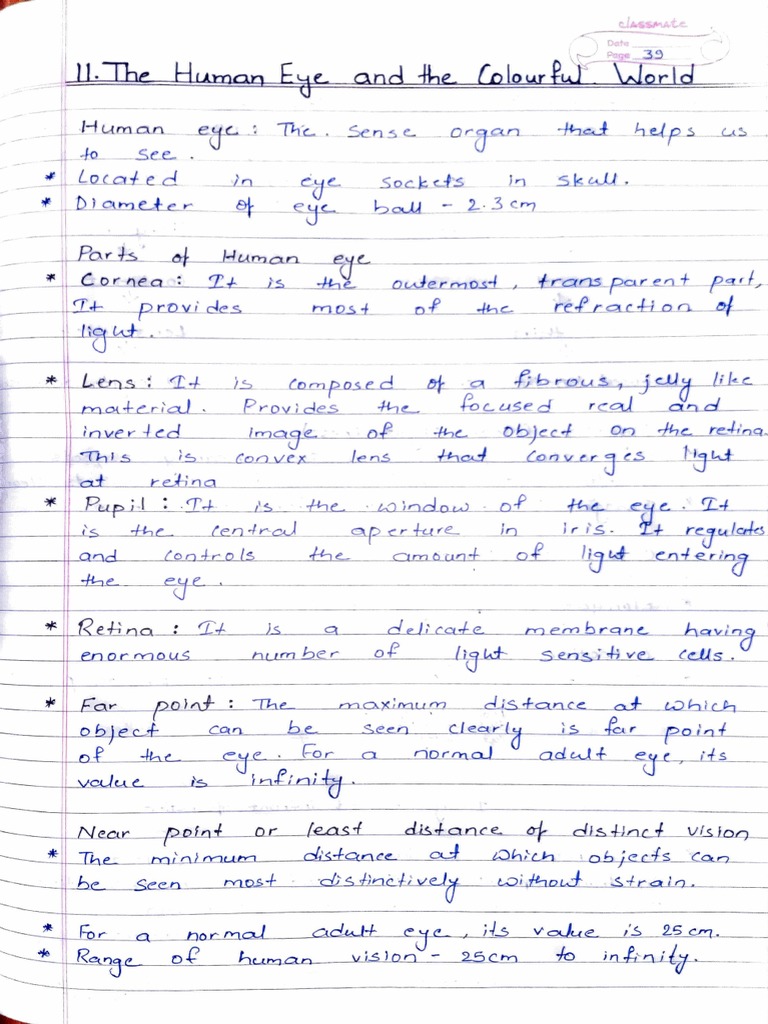 classmate
Date
Page 39
11. The Human Eye and the Colourful World
Human eye : The sense organ that helps us
to see.
* Located in eye sockets in skull.
* Diameter of eye ball - 2.3 cm
Parts of Human eye
* Cornea : It is the outermost, transparent part,
It provides most of the refraction of
light.
* Lens : It is composed of a fibrous, jelly like
material. Provides the focused real and
inverted image of the object on the retina.
This is convex lens that converges light
at retina
* Pupil : It is the window of the eye. It
is the central aperture in iris. It regulates
and controls the amount of light entering
the eye.
* Retina : It is a delicate membrane having
enormous number of light sensitive cells.
* Far point : The maximum distance at which
object can be seen clearly is far point
of the eye. For a normal adult eye, its
value is infinity.
Near point or least distance of distinct vision
* The minimum distance at which objects can
be seen most distinctively without strain.
* For a normal adult eye, its value is 25 cm.
* Range of human vision - 25cm to infinity.